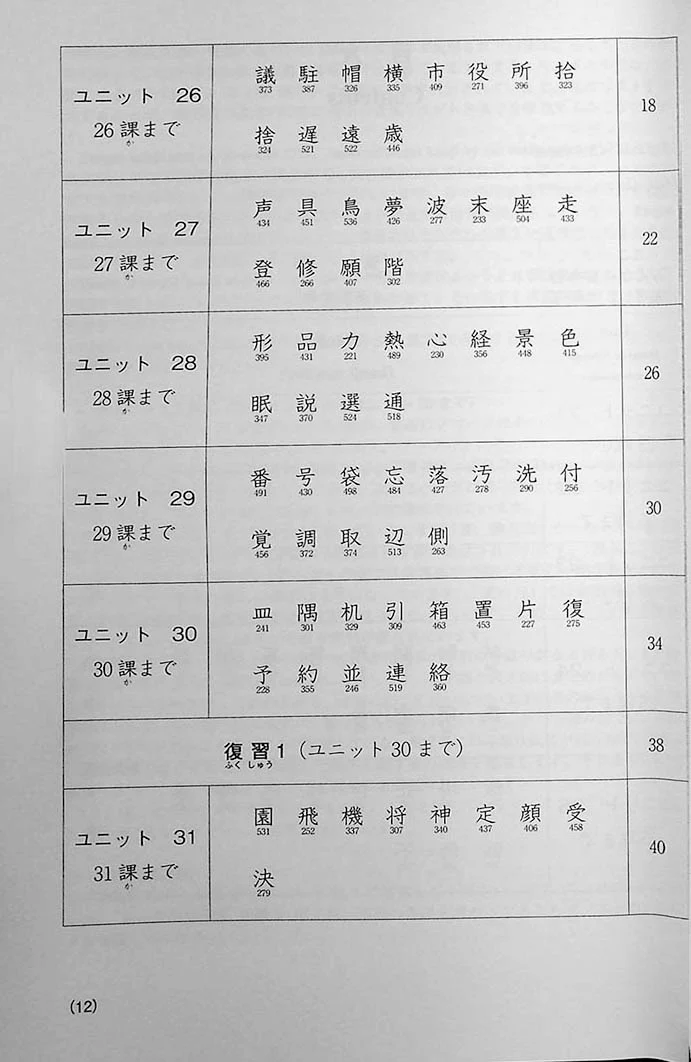 ユニット 26
26課まで
か
議 駐 帽 横 市 役 所 拾
373 387 326 335 409 271 396 323
捨 遅 遠 歳
324 521 522 446
18
ユニット 27
27課まで
か
声 具 鳥 夢 波 末 座 走
434 451 536 426 277 233 504 433
登 修 願 階
466 266 407 302
22
ユニット 28
28課まで
か
形 品 力 熱 心 経 景 色
395 431 221 489 230 356 448 415
眠 説 選 通
347 370 524 518
26
ユニット 29
29課まで
か
番 号 袋 忘 落 汚 洗 付
491 430 498 484 427 278 290 256
覚 調 取 辺 側
456 372 374 513 263
30
ユニット 30
30課まで
か
皿 隅 机 引 箱 置 片 復
241 301 329 309 463 453 227 275
予 約 並 連 絡
228 355 246 519 360
34
復習1（ユニット30まで）
ふく しゅう
38
ユニット 31
31課まで
か
園 飛 機 将 神 定 顔 受
531 252 337 307 340 437 406 458
決
279
40
(12)